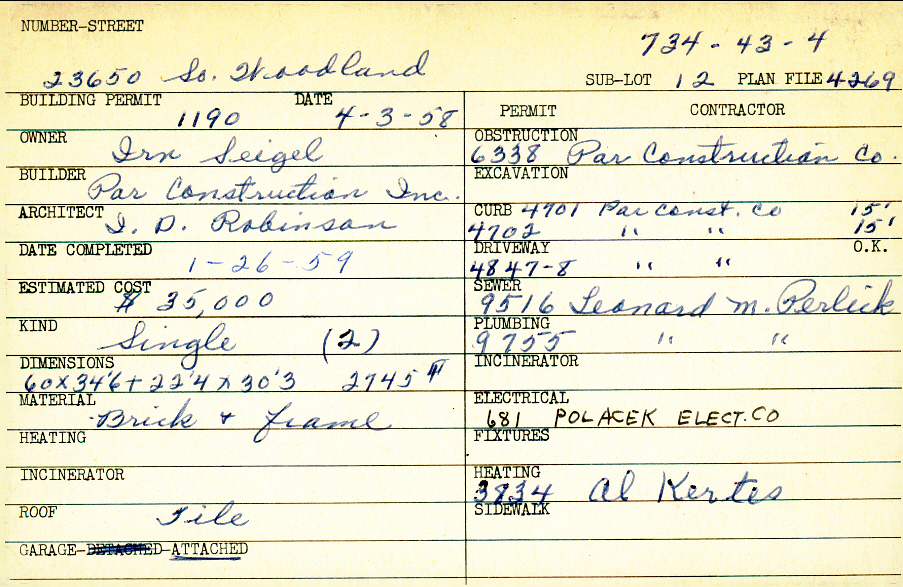 NUMBER-STREET
734-43-4
23650 So. Woodland
SUB-LOT 12 PLAN FILE 4269
BUILDING PERMIT DATE
1190 4-3-58
OWNER
Irn Seigel
BUILDER
Par Construction Inc.
ARCHITECT
I. D. Robinson
DATE COMPLETED
1-26-59
ESTIMATED COST
$ 35,000
KIND
Single (2)
DIMENSIONS
60x34'6+22'4x30'3 2745 #
MATERIAL
Brick + frame
HEATING
INCINERATOR
ROOF
Tile
GARAGE-DETACHED-ATTACHED
PERMIT CONTRACTOR
OBSTRUCTION
6338 Par Construction Co.
EXCAVATION
CURB 4701 Par Const. Co 15'
4702 " " 15'
DRIVEWAY O.K.
4847-8 " "
SEWER
9516 Leonard M. Perlick
PLUMBING
9755 " "
INCINERATOR
ELECTRICAL
681 POLACEK ELECT. CO
FIXTURES
HEATING
3834 Al Kertes
SIDEWALK